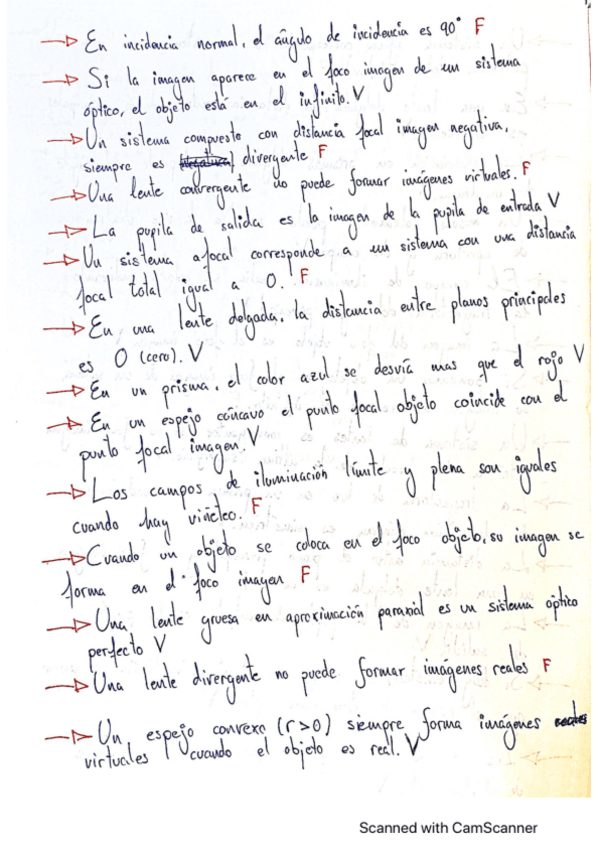 En incidencia normal, el ángulo de incidencia es 90° F
Si la imagen aparece en el foco imagen de un sistema
óptico, el objeto está en el infinito. V
Un sistema compuesto con distancia focal imagen negativa,
siempre es divergente F
Una lente convergente no puede formar imágenes virtuales. F
La pupila de salida es la imagen de la pupila de entrada V
Un sistema afocal corresponde a un sistema con una distancia
focal total igual a 0. F
En una lente delgada, la distancia entre planos principales
es 0 (cero). V
En un prisma, el color azul se desvía mas que el rojo V
En un espejo cóncavo el punto focal objeto coincide con el
punto focal imagen. V
Los campos de iluminación límite y plena son iguales
cuando hay viñeteo. F
Cuando un objeto se coloca en el foco objeto, su imagen se
forma en el foco imagen F
Una lente gruesa en aproximación paraxial es un sistema óptico
perfecto V
Una lente divergente no puede formar imágenes reales F
Un espejo convexo (r>0) siempre forma imágenes reales
virtuales cuando el objeto es real. V
Scanned with CamScanner